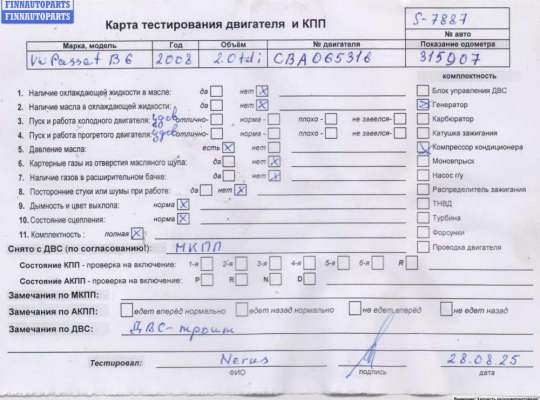 FINNAUTOPARTS
FINNAUTOPARTS
Карта тестирования двигателя и КПП
S-7887
№ авто
Марка, модель Год Объём № двигателя Показание одометра
Vw Passat B6 2008 2.0tdi CBA065316 315907
комплектность
1. Наличие охлаждающей жидкости в масле: да нет X
Блок управления ДВС
2. Наличие масла в охлаждающей жидкости: да нет X
Генератор
3. Пуск и работа холодного двигателя: удов отлично- норма - плохо - не завелся-
Карбюратор
4. Пуск и работа прогретого двигателя: удов отлично- норма - плохо - не завелся-
Катушка зажигания
5. Давление масла: есть X нет
Компрессор кондиционера
6. Картерные газы из отверстия масляного щупа: да нет X
Моновпрыск
7. Наличие газов в расширительном бачке: да нет X
Насос г/у
8. Посторонние стуки или шумы при работе: да нет X
Распределитель зажигания
9. Дымность и цвет выхлопа: норма X
ТНВД
10. Состояние сцепления: норма X
Турбина
11. Комплектность : полная X
Форсунки
Снято с ДВС (по согласованию!): МКПП
Проводка двигателя
Состояние КПП - проверка на включение: 1-я 2-я 3-я 4-я 5-я 6-я R
Состояние АКПП - проверка на включение: P R N D
Замечания по МКПП:
Замечания по АКПП: едет вперёд нормально едет назад нормально не едет вперёд не едет назад
Замечания по ДВС: ДВС-троит
Тестировал: Nerus 28.08.25
ФИО подпись дата